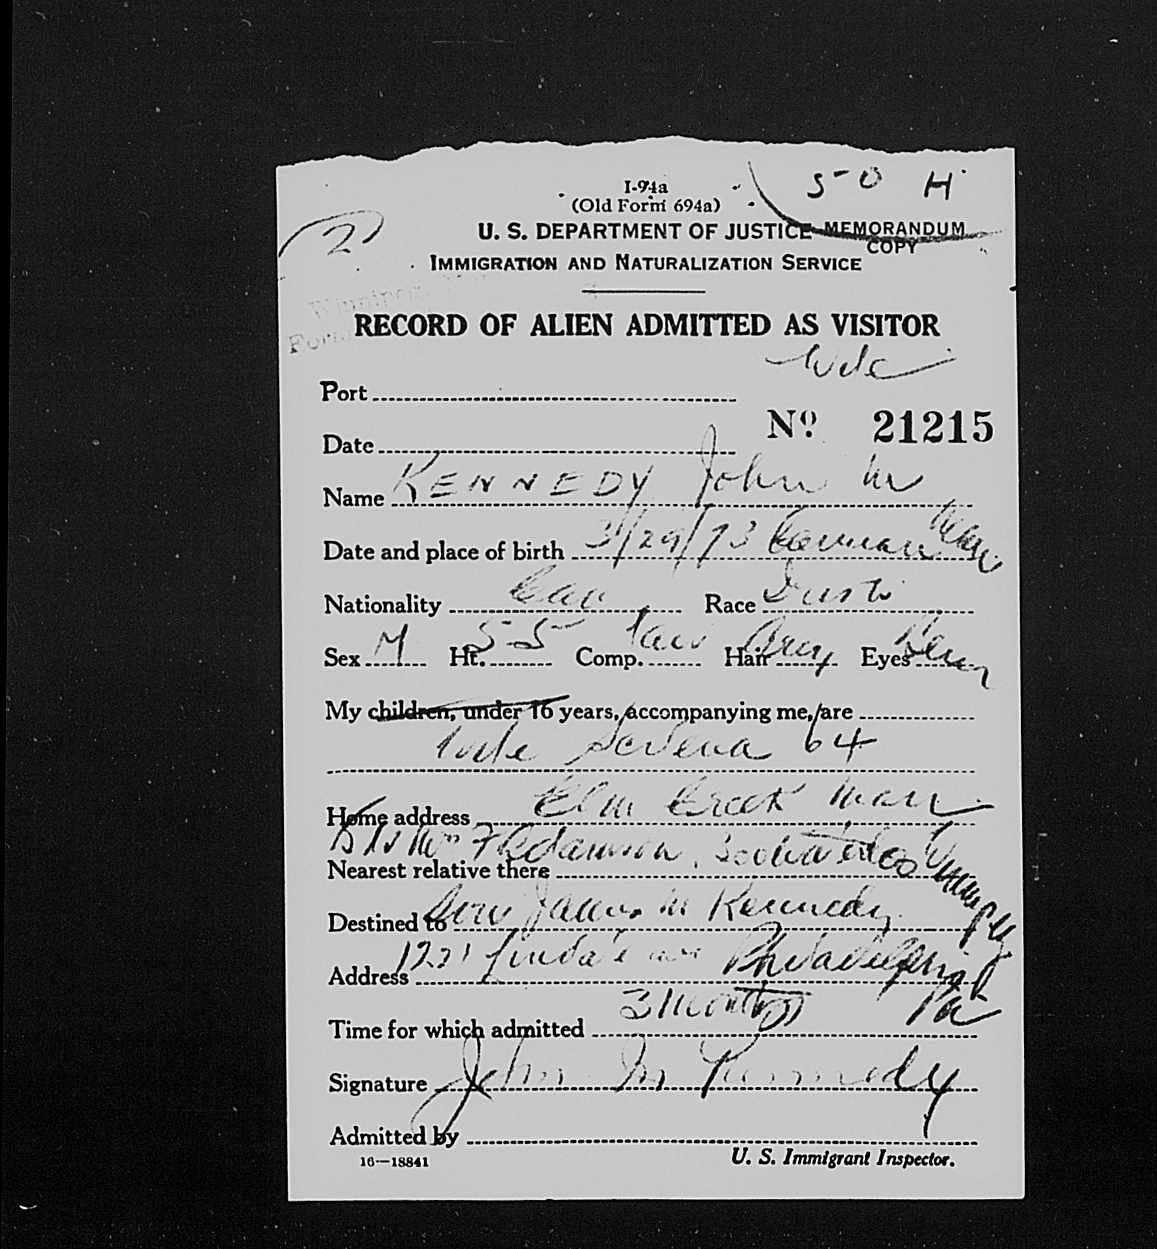 5-0 H
I-94a
(Old Form 694a)
2
U. S. DEPARTMENT OF JUSTICE MEMORANDUM
COPY
IMMIGRATION AND NATURALIZATION SERVICE
Winnipeg,
RECORD OF ALIEN ADMITTED AS VISITOR
Port
No. 21215
Date
Name KENNEDY John M
Date and place of birth 3/29/73 Carman Man
Nationality Can Race Irish
Sex M Ht. 5-5 Comp. Fair Hair Grey Eyes
My children, under 16 years, accompanying me, are
Wife 64
Home address Elm Creek Man
Nearest relative there Winnipeg
Destined to Son James M Kennedy
Address 1221 Ave Philadelphia
Pa
Time for which admitted 3 months
Signature John M Kennedy
Admitted by
16—18841 U. S. Immigrant Inspector.